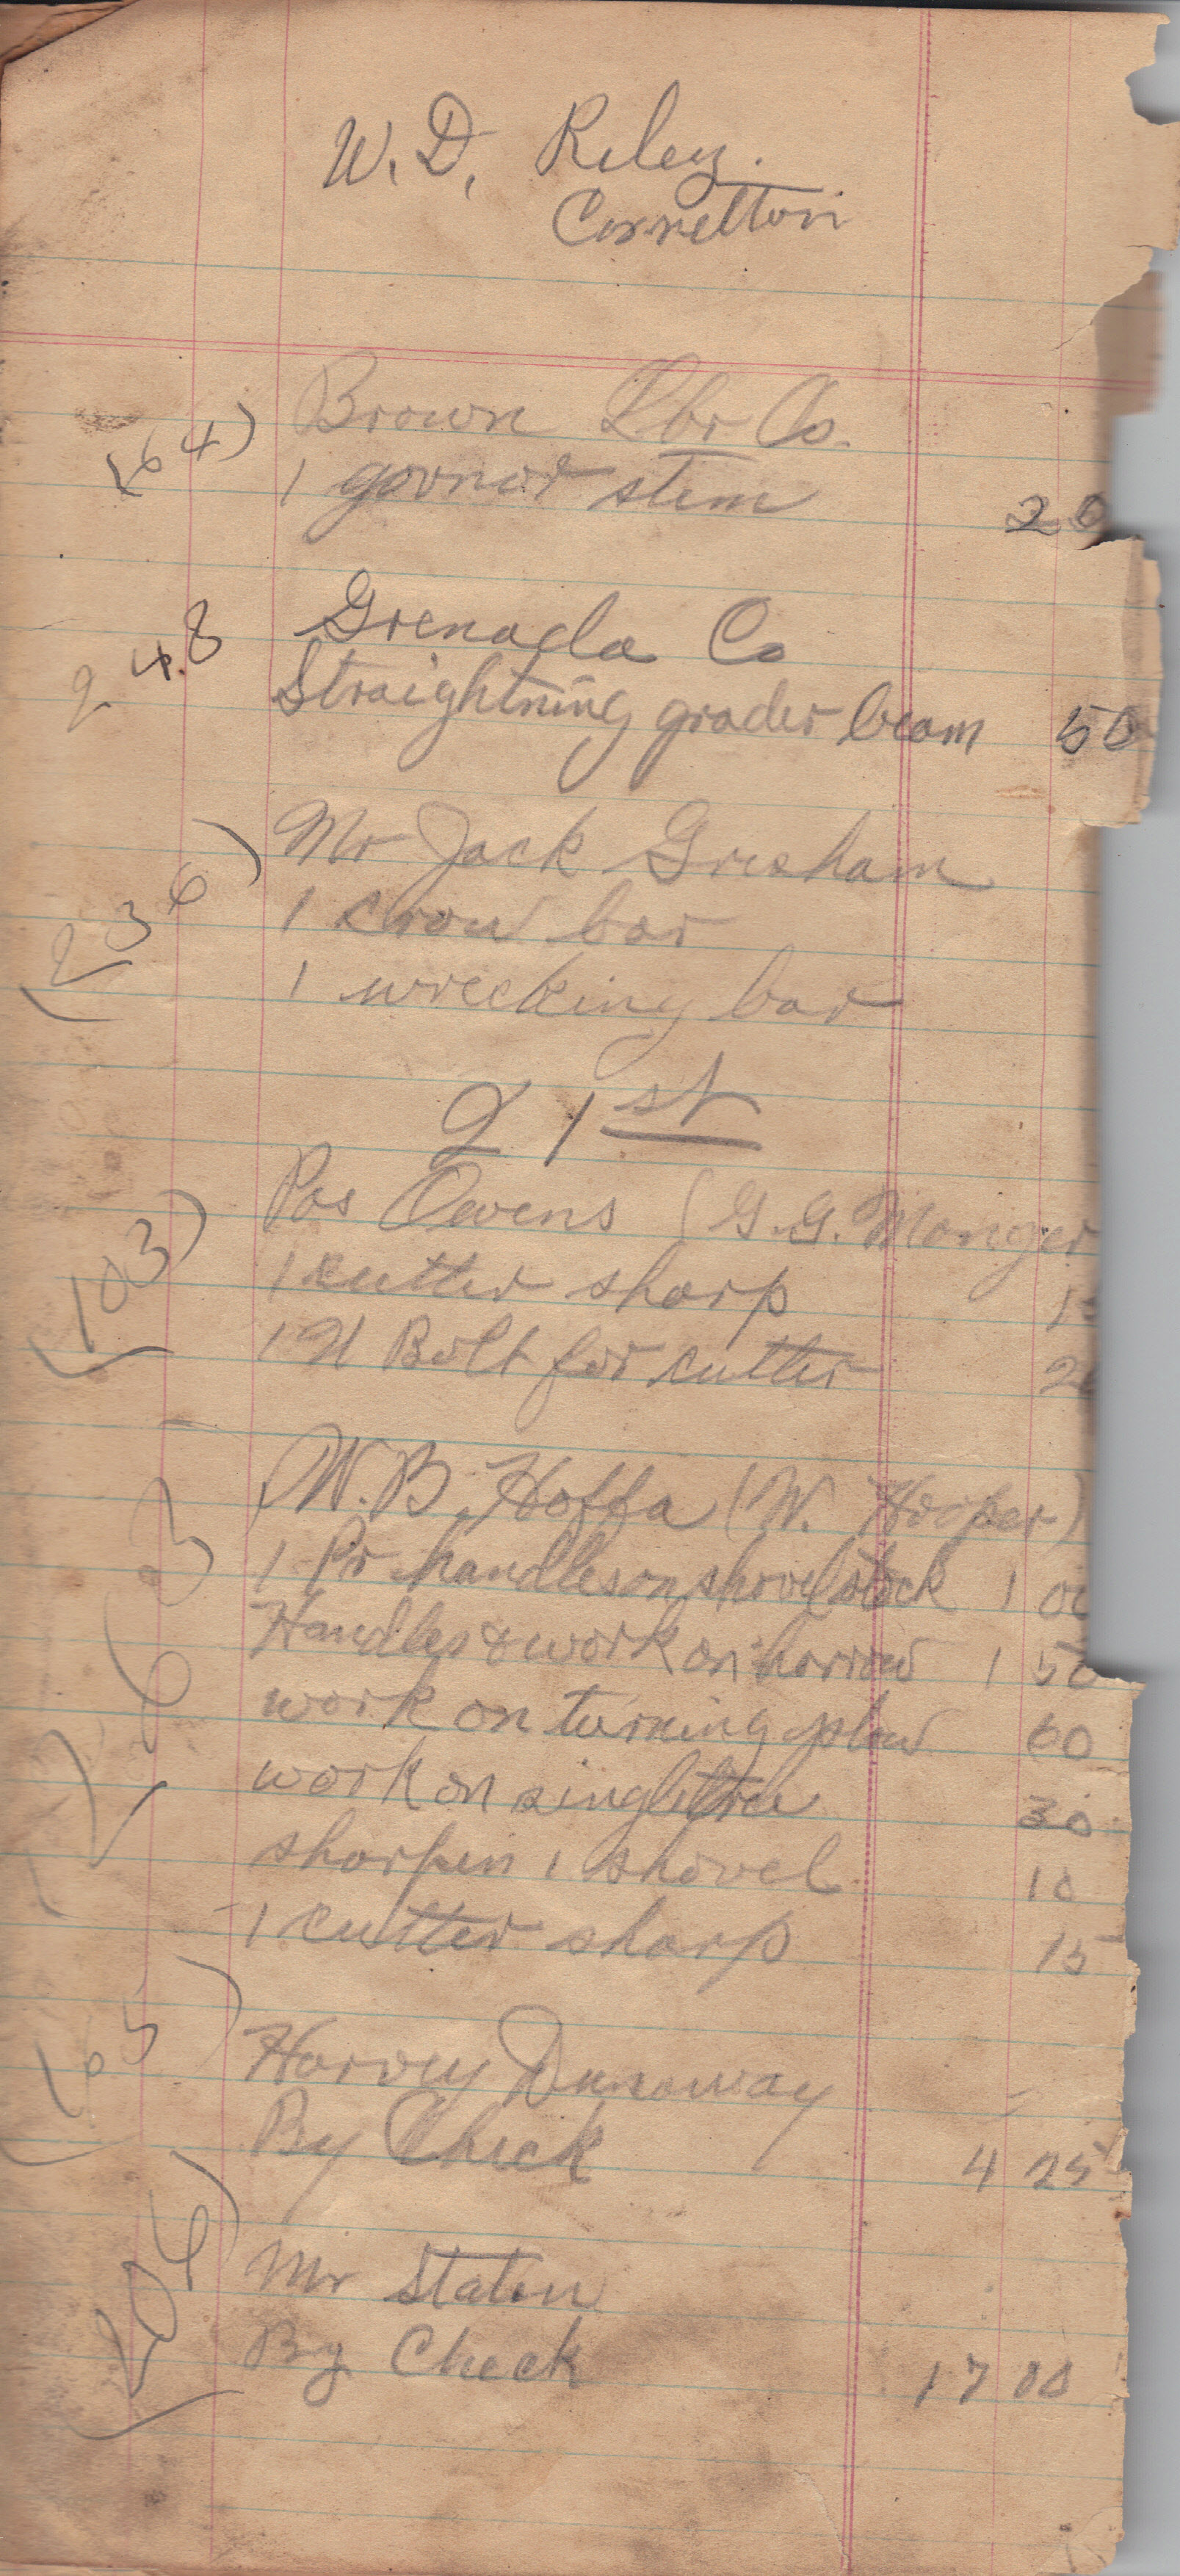 W. D. Riley.
Correlton
(64) Brown Lbr Co.
1 govnor stem 20
248 Grenada Co
Straightning grader beam 50
(236) Mr Jack Gresham
1 crow bar
1 wrecking bar
21st
(103) Pas Owens (G. G. Manger
1 cutter sharp 1
1 U Bolt for cutter 20
(263 W. B. Hoffa (W. Hooper)
1 Pr handles on shovel stock 1 00
Handles & work on harrow 1 50
work on turning plow 60
work on singletree 30
sharpen 1 shovel 10
1 cutter sharp 15
(65) Harvey Dunaway
By Check 4 25
(206) Mr Staten
By Check 17 00